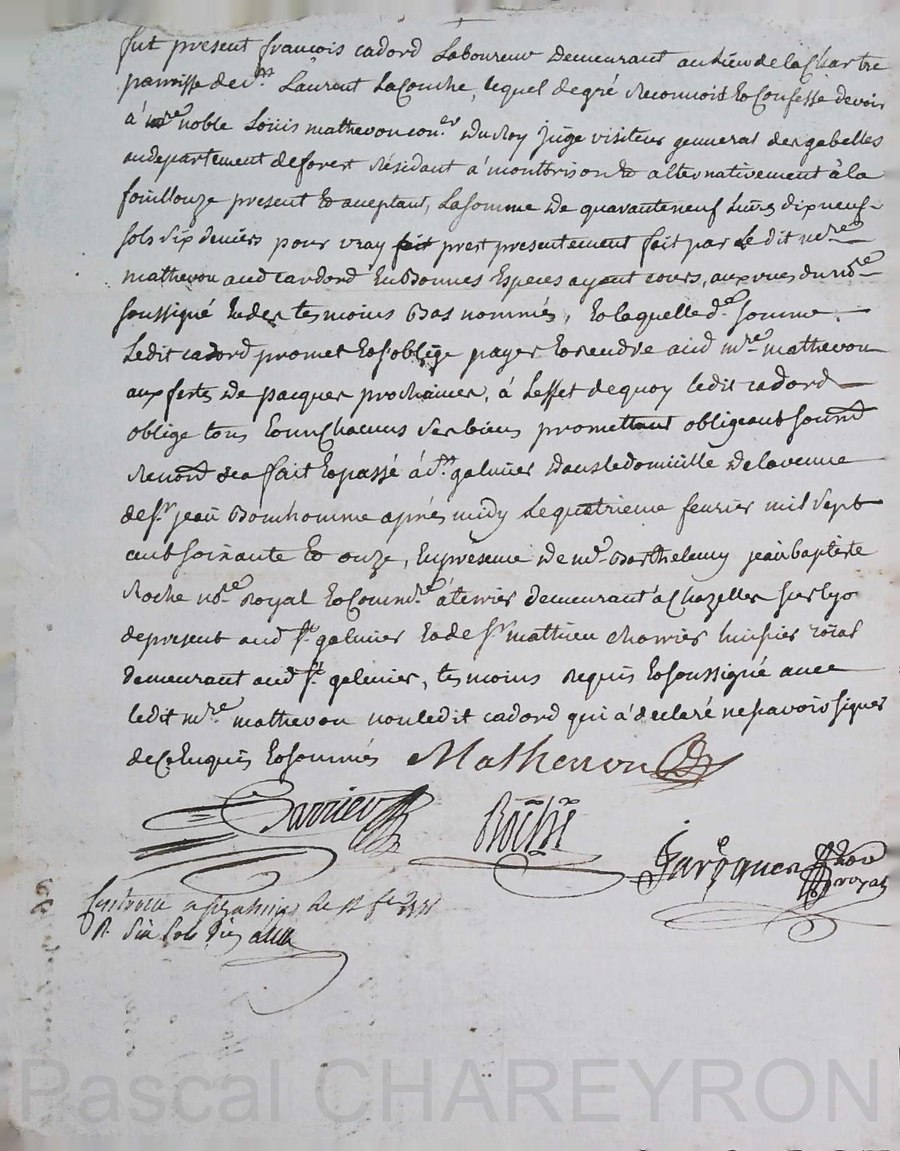 fut present françois cadord Laboureur Demeurant au Lieu de la Chartre
parroisse de st. Laurent La Conche, lequel de gré Reconnoit & Confesse devoir
à mre noble Loüis mathevon coner. Du Roy juge visiteur general des gabelles
au departement de forest Résidant a montbrison & alternativement à la
foüillouze present & aceptant, La somme de quarante neuf Livres dix neuf
sols six deniers pour vray prest presentement fait par Le dit mre
mathevon aud cardord En Bonnes Especes ayant cours, aux vues du nore
soussigné Et des temoins Bas nommés, & laquelle de somme
Ledit cadord promet & s'oblige payer & rendre aud mre mathevon
aux fetes de pacques prochaines, à Leffet de quoy ledit cadord
oblige tous & un Chacuns ses biens promettant obligeant soumd
Renond &a fait & passé à st. galmier dans le domicille de la veuve
de sr. jean Bonhomme après midy Le quatrieme fevrier mil sept
cent soixante & onze, En presence de me. Barthelemy jean baptiste
Roche nore. Royal & Commre à terrier demeurant a Chazelles sur Lyo
de present aud st galmier & de sr mathieu huissier roial
demeurant aud st. galmier, temoins requis & soussigné avec
ledit mre. mathevon non ledit cadord qui à declaré ne savoir signer
de Ce Enquis & sommés Mathevon
Roche
royal
a st galmier le
R. six sols
Pascal CHAREYRON